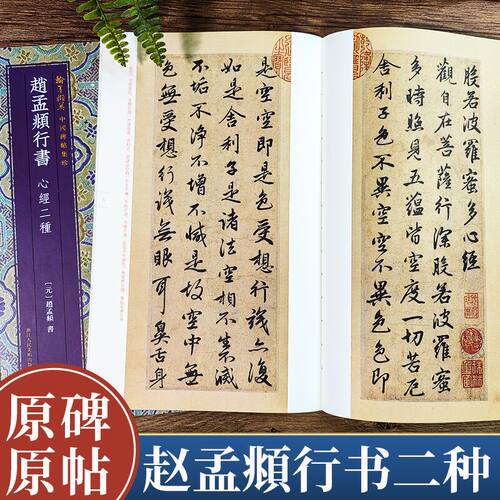 趙孟頫行書
心經二種
〔元〕趙孟頫 書
中國碑帖集珍
般若波羅蜜多心經
觀自在菩薩行深般若波羅蜜
多時照見五蘊皆空度一切苦厄
舍利子色不異空空不異色色即
是空空即是色受想行識亦復
如是舍利子是諸法空相不生不滅
不垢不淨不增不減是故空中無
色無受想行識無眼耳鼻舌身
原碑
原帖
赵孟頫行书二种